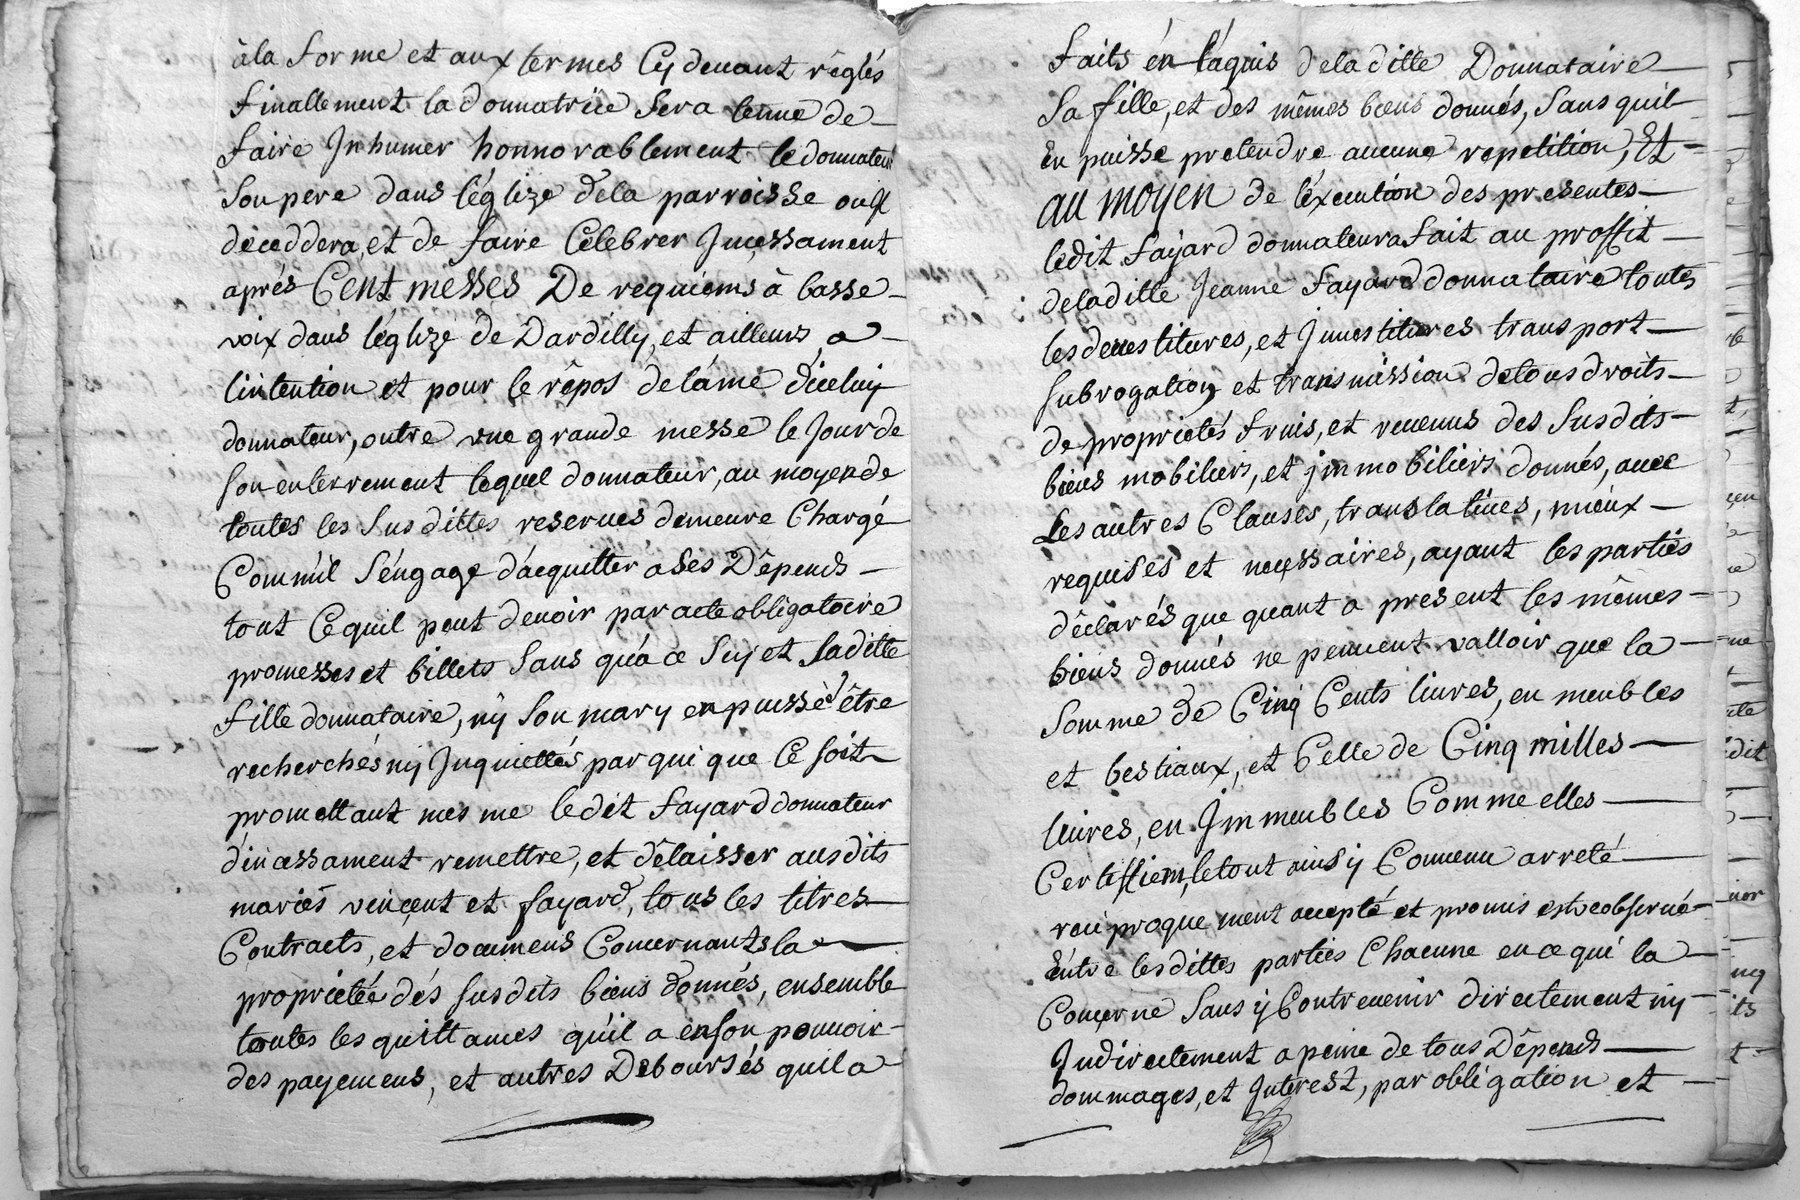 à la forme et aux termes Cy devant réglés
finallement la donnatrice sera tenue de
faire Jnhumer honnorablement le donnateur
son pere dans l'églize dela parroisse ou il
déceddera, et de faire Célebrer Jncessament
aprés Cent messes De requiems à basse
voix dans l'églize de Dardilly, et ailleurs a
l'intention et pour le répos de l'ame d'iceluy
donnateur, outre une grande messe le Jour de
son enterrement lequel donnateur, au moyen de
toutes les susdittes reserves demeure Chargé
Comm'il s'éngage d'acquitter a ses Dépends
tout Ce quil peut devoir par acte obligatoire
promesses et billets sans qu'a ce sujet laditte
fille donnataire, ny son mary en puisse être
recherchés ny Jnquiettés par qui que Ce soit
promettant mesme ledit fayard donnateur
d'incessament remettre, et délaisser ausdits
mariés vincent et fayard, tous les titres
Contracts, et documens Concernants la
proprietée dés susdits biens donnés, ensemble
toutes les quittances qu'il a en son pouvoir
des payemens, et autres Deboursés quil a
faits én l'aquis de laditte Donnataire
sa fille, et des mêmes biens donnés, sans quil
En puisse pretendre aucune repetition, Et
au moyen de l'éxecution des presentes
ledit fayard donnateur a fait au proffit
de laditte Jeanne fayard donnataire toutes
les devestitures, et Jnvestitures transport
subrogation et transmission de tous droits
de proprietés fruis, et revenus des susdits
biens mobiliers, et jmmobiliers donnés, avec
Les autres Clauses, translatives, mieux
requises et necessaires, ayant les parties
déclarés que quant a present les mêmes
biens donnés ne peuvent valloir que la
somme de Cinq Cents livres, en meubles
et bestiaux, et Celle de Cinq milles
livres, en Jmmeubles Comme elles
Certiffient, le tout ainsy Convenu arreté
reciproquement accepté et promis estre observé
Entre lesdittes parties Chacune en ce qui la
Concerne sans y Contrevenir directement ny
Jndirectement a peine de tous Dépends
dommages, et Jnterest, par obligation et